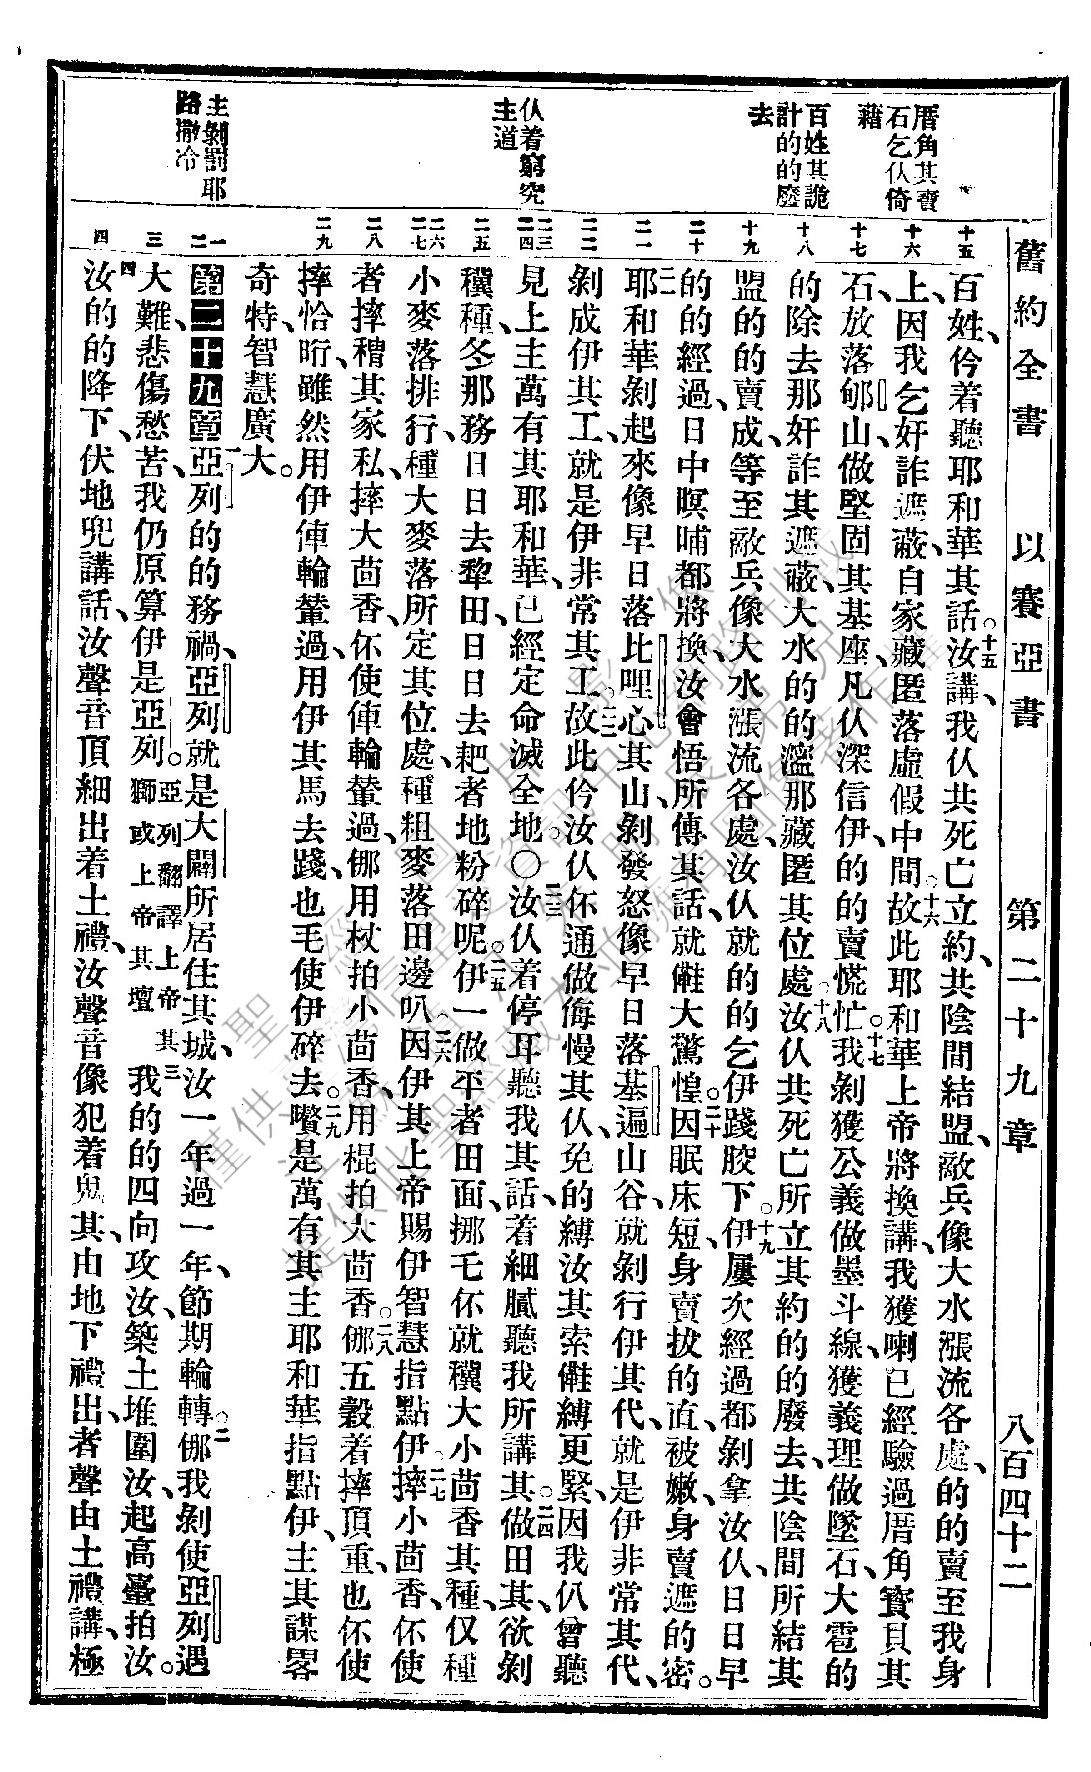 舊約全書 以賽亞書 第二十九章 八百四十二
厝角其寶
石乞仈倚
藉
百姓其詭
計的的廢
去
仈着窮究
主道
主剝罰耶
路撒冷
十五
十六
十七
十八
十九
二十
二一
二二
二三
二四
二五
二六
二七
二八
二九
一
二
三
四
百姓、仱着聽耶和華其話。十五汝講、我仈共死亡立約、共陰間結盟、敵兵像大水漲流各處、的的賣至我身
上、因我乞奸詐遮蔽、自家藏匿落虛假中間。十六故此耶和華上帝將換講、我獲喇已經驗過厝角寶貝其
石、放落郇山、做堅固其基座、凡仈深信伊的的賣慌忙。十七我剝獲公義做墨斗線、獲義理做墜石、大雹的
的除去那奸詐其遮蔽、大水的的濫那藏匿其位處。十八汝仈共死亡所立其約的的廢去、共陰間所結其
盟的的賣成、等至敵兵像大水漲流各處、汝仈就的的乞伊踐腔下。十九伊屢次經過都剝拿汝仈、日日早
的的經過、日中暝晡都將換、汝會悟所傳其話、就㒁大驚惶。二十因眠床短、身賣拔的直、被嫩、身賣遮的密。
二一耶和華剝起來像早日落比哩心其山、剝發怒像早日落基遍山谷、就剝行伊其代、就是伊非常其代、
剝成伊其工、就是伊非常其工。二二故此仱汝仈伓通做侮慢其仈、免的縛汝其索㒁縛更緊、因我仈曾聽
見上主萬有其耶和華、已經定命滅全地。〇二三汝仈着停耳聽我其話、着細膩聽我所講其。二四做田其、欲剝
穳種、冬那務日日去犂田、日日去耙者地粉碎呢。二五伊一做平者田面、挪乇伓就穳大小茴香其種、僅種
小麥落排行、種大麥落所定其位處、種粗麥落田邊叭。二六因伊其上帝賜伊智慧指點伊。二七摔小茴香、伓使
者摔稽其家私、摔大茴香、伓使俥輪輦過、㑚用杖拍小茴香、用棍拍大茴香。二八㑚五穀着摔、頂重也伓使
摔恰昕、雖然用伊俥輪輦過、用伊其馬去踐、也乇使伊碎去。二九嚽是萬有其主耶和華指點伊、主其謀畧
奇特、智慧廣大。
第二十九章 一亞列的的務禍、亞列就是大闢所居住其城、汝一年過一年、節期輪轉。二㑚我剝使亞列遇
大難、悲傷愁苦、我仍原算伊是亞列。亞列翻譯上帝其獅或上帝其壇 三我的的四向攻汝、築土堆圍汝、起高臺拍汝。
四汝的的降下、伏地兜講話、汝聲音頂細出着土禮、汝聲音像犯着鬼其、由地下禮出、者聲由土禮講、極